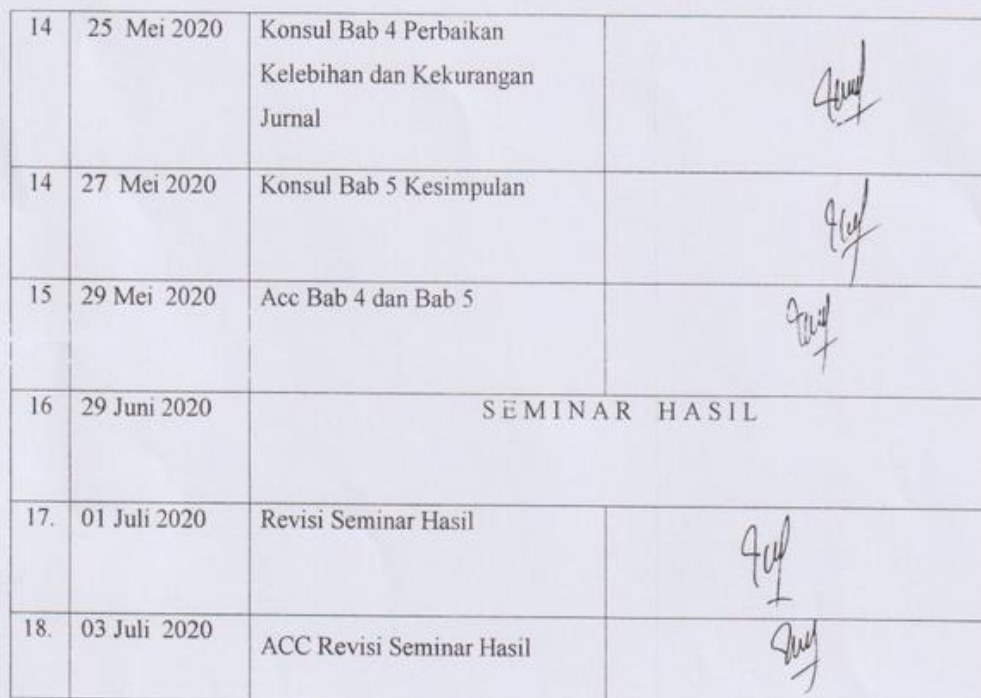 14 25 Mei 2020 Konsul Bab 4 Perbaikan
Kelebihan dan Kekurangan
Jurnal
14 27 Mei 2020 Konsul Bab 5 Kesimpulan
15 29 Mei 2020 Acc Bab 4 dan Bab 5
16 29 Juni 2020 SEMINAR HASIL
17. 01 Juli 2020 Revisi Seminar Hasil
18. 03 Juli 2020 ACC Revisi Seminar Hasil